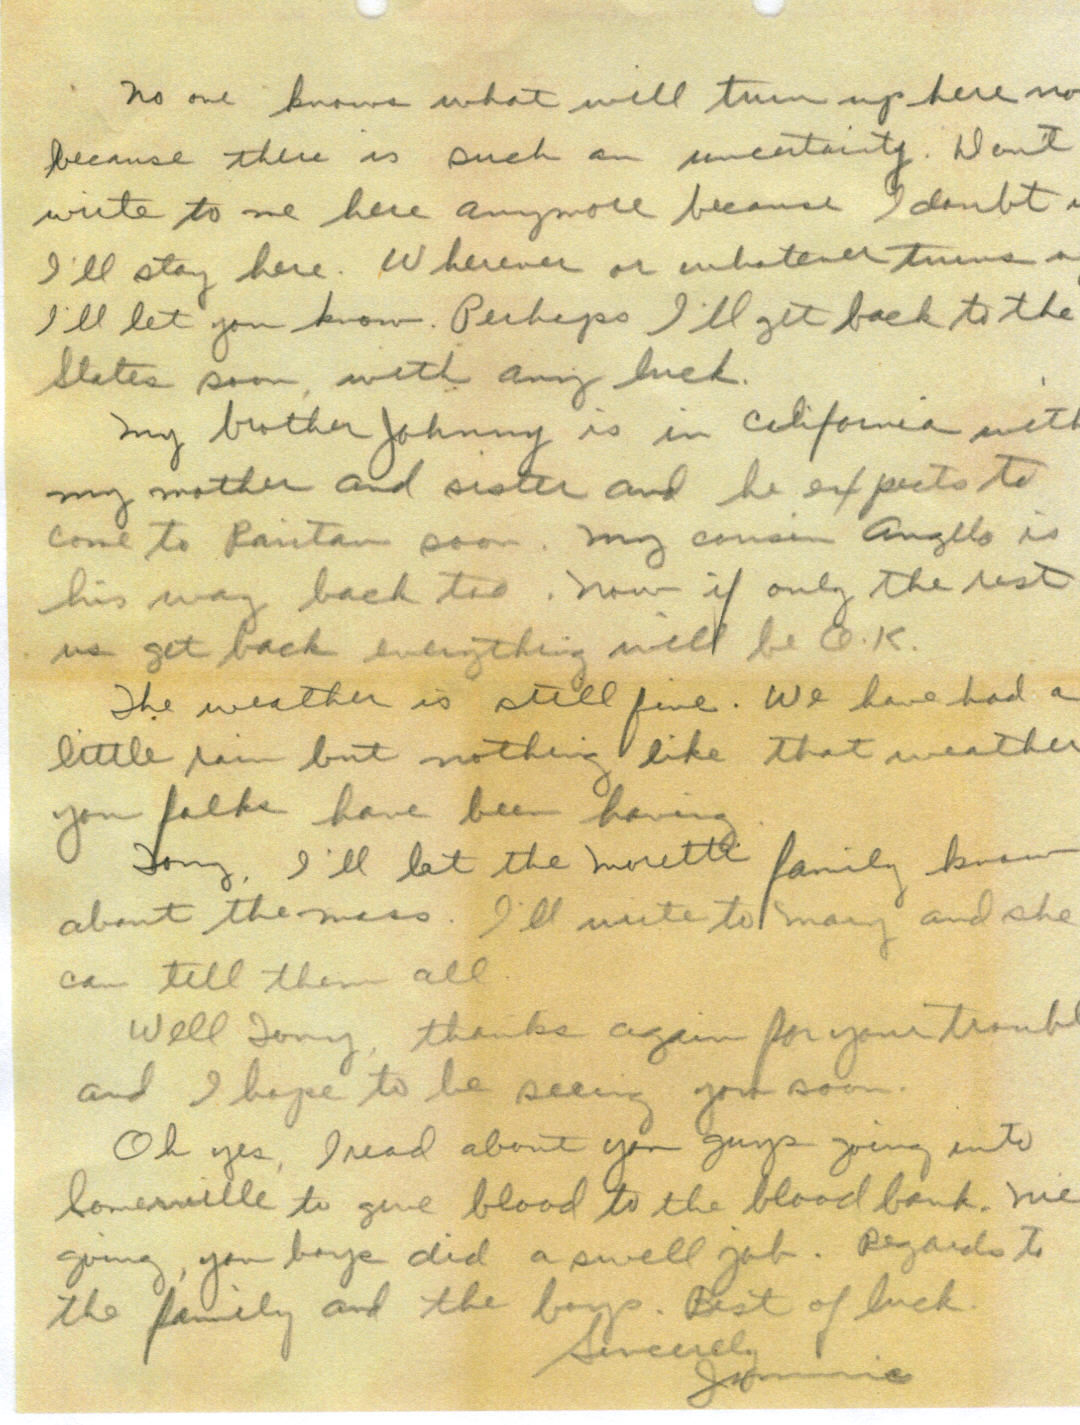 No one knows what will turn up here no
because there is such an uncertainty. Don't
write to me here anymore because I doubt i
I'll stay here. Wherever or whatever turns u
I'll let you know. Perhaps I'll get back to the
States soon, with any luck.
My brother Johnny is in California with
my mother and sister and he expects to
come to Raritan soon. My cousin Angelo is
his way back too. Now if only the rest
us get back everything will be O.K.
The weather is still fine. We have had a
little rain but nothing like that weather
you folks have been having.
Tony, I'll let the Moretti family know
about the mass. I'll write to Mary and she
can tell them all.
Well Tony, thanks again for your troubl
and I hope to be seeing you soon.
Oh yes, I read about you guys going into
Somerville to give blood to the blood bank. Nice
going, you boys did a swell job. Regards to
the family and the boys. Best of luck.
Sincerely